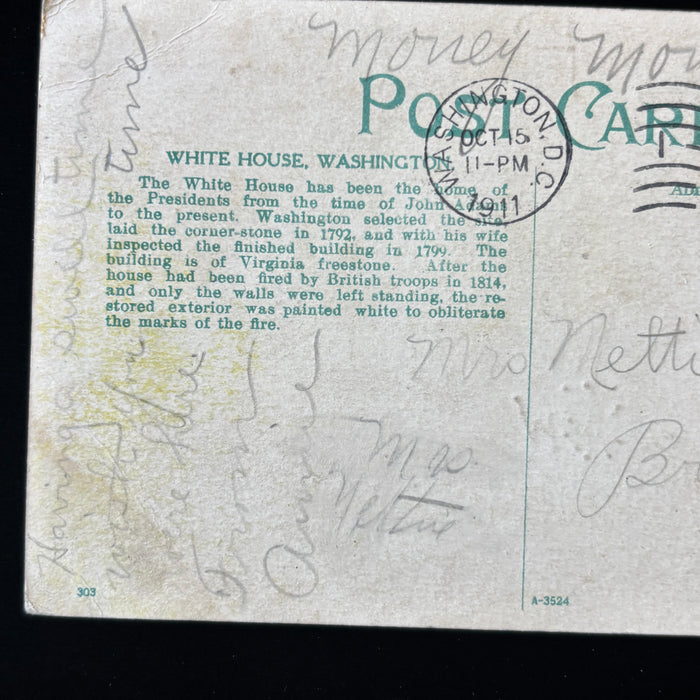 Money Mon
POST CAR
WASHINGTON, D.C.
OCT 15
11-PM
1911
WHITE HOUSE, WASHINGTON
The White House has been the home of
the Presidents from the time of John Adams
to the present. Washington selected the site,
laid the corner-stone in 1792, and with his wife
inspected the finished building in 1799. The
building is of Virginia freestone. After the
house had been fired by British troops in 1814,
and only the walls were left standing, the re-
stored exterior was painted white to obliterate
the marks of the fire.
Mrs Netti
Br
Mrs.
Nettie
Having a sweet time
wish you
here
From
303
A-3524